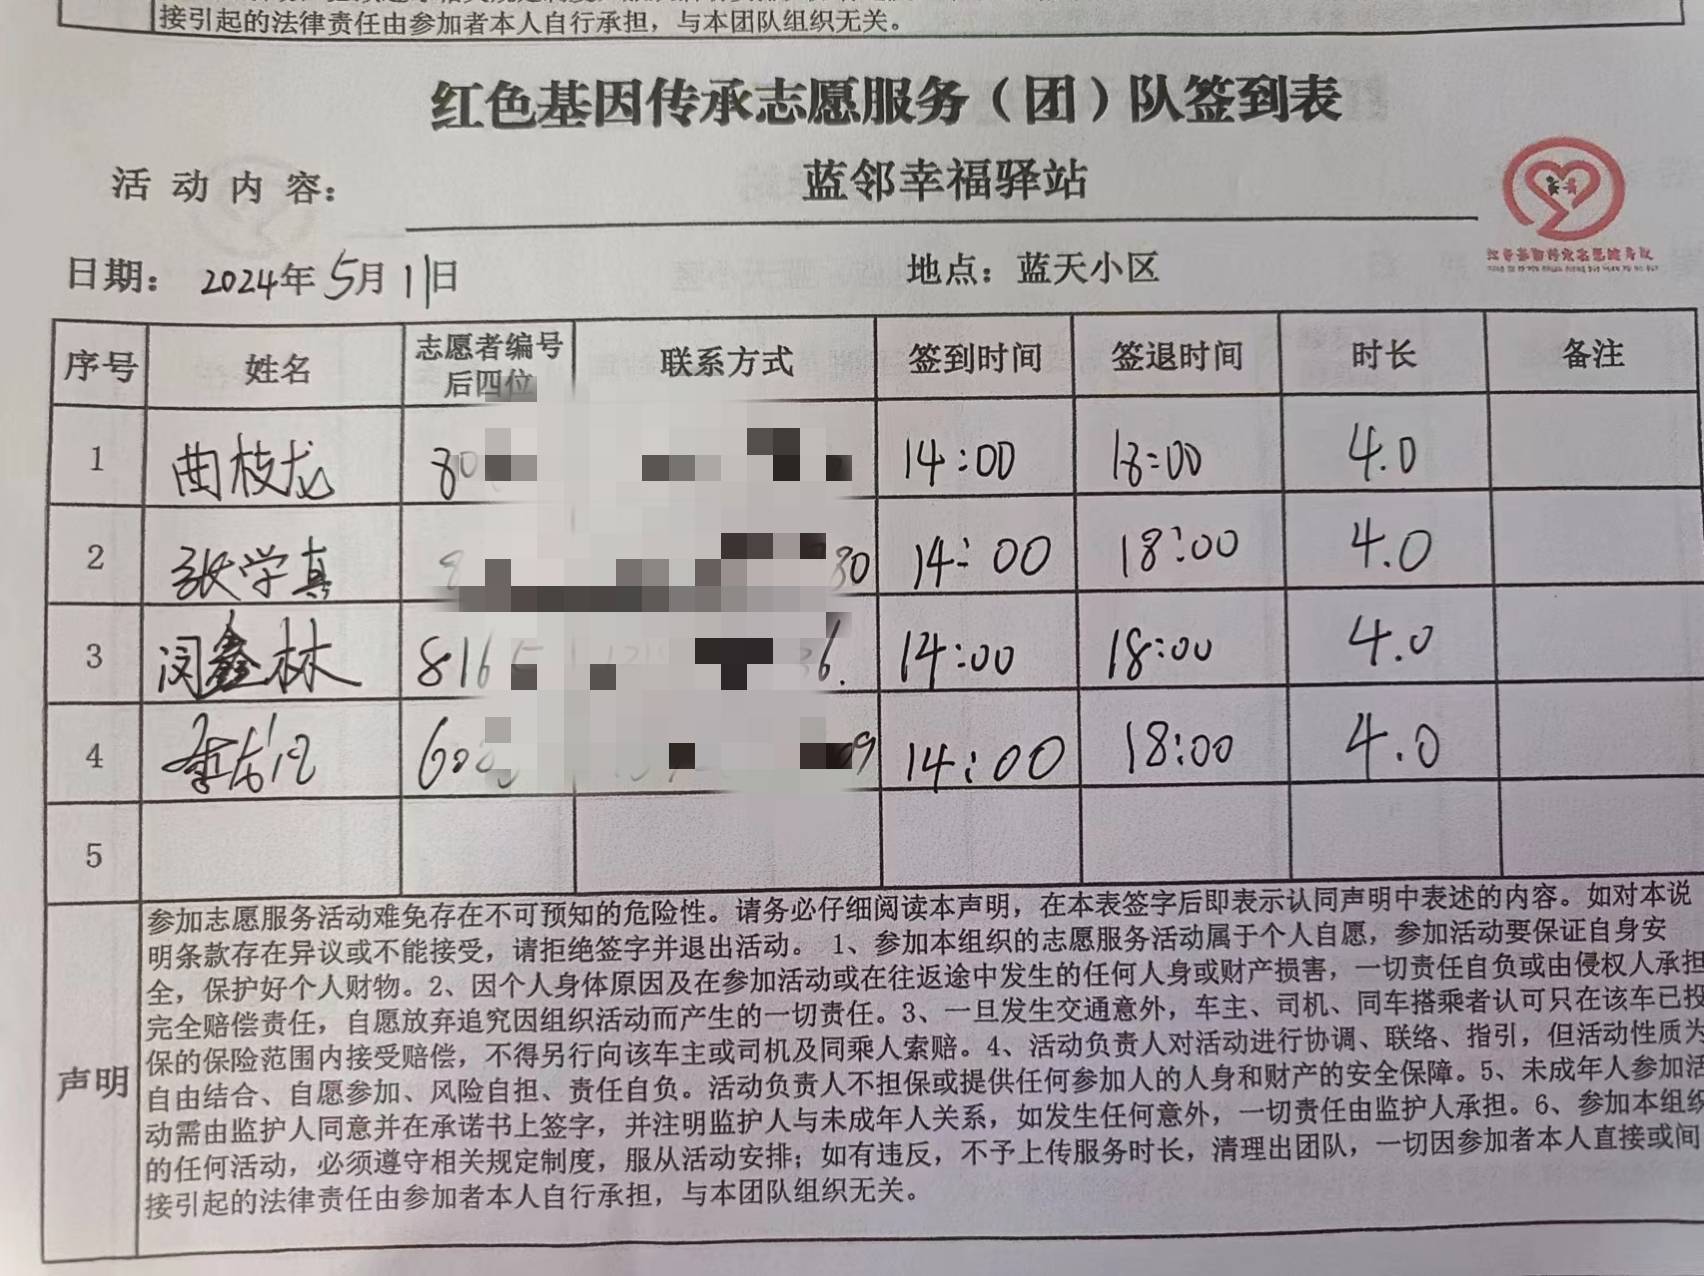 接引起的法律责任由参加者本人自行承担，与本团队组织无关。
红色基因传承志愿服务（团）队签到表
活动内容： 蓝邻幸福驿站
日期：2024年5月11日 地点：蓝天小区
序号 姓名 志愿者编号后四位 联系方式 签到时间 签退时间 时长 备注
1 曲枝龙 80 14:00 18:00 4.0
2 张学真 80 14:00 18:00 4.0
3 闵鑫林 816 36. 14:00 18:00 4.0
4 60 09 14:00 18:00 4.0
5
声明
参加志愿服务活动难免存在不可预知的危险性。请务必仔细阅读本声明，在本表签字后即表示认同声明中表述的内容。如对本说
明条款存在异议或不能接受，请拒绝签字并退出活动。 1、参加本组织的志愿服务活动属于个人自愿，参加活动要保证自身安
全，保护好个人财物。2、因个人身体原因及在参加活动或在往返途中发生的任何人身或财产损害，一切责任自负或由侵权人承担
完全赔偿责任，自愿放弃追究因组织活动而产生的一切责任。3、一旦发生交通意外，车主、司机、同车搭乘者认可只在该车已投
保的保险范围内接受赔偿，不得另行向该车主或司机及同乘人索赔。4、活动负责人对活动进行协调、联络、指引，但活动性质为
自由结合、自愿参加、风险自担、责任自负。活动负责人不担保或提供任何参加人的人身和财产的安全保障。5、未成年人参加活
动需由监护人同意并在承诺书上签字，并注明监护人与未成年人关系，如发生任何意外，一切责任由监护人承担。6、参加本组织
的任何活动，必须遵守相关规定制度，服从活动安排；如有违反，不予上传服务时长，清理出团队，一切因参加者本人直接或间
接引起的法律责任由参加者本人自行承担，与本团队组织无关。